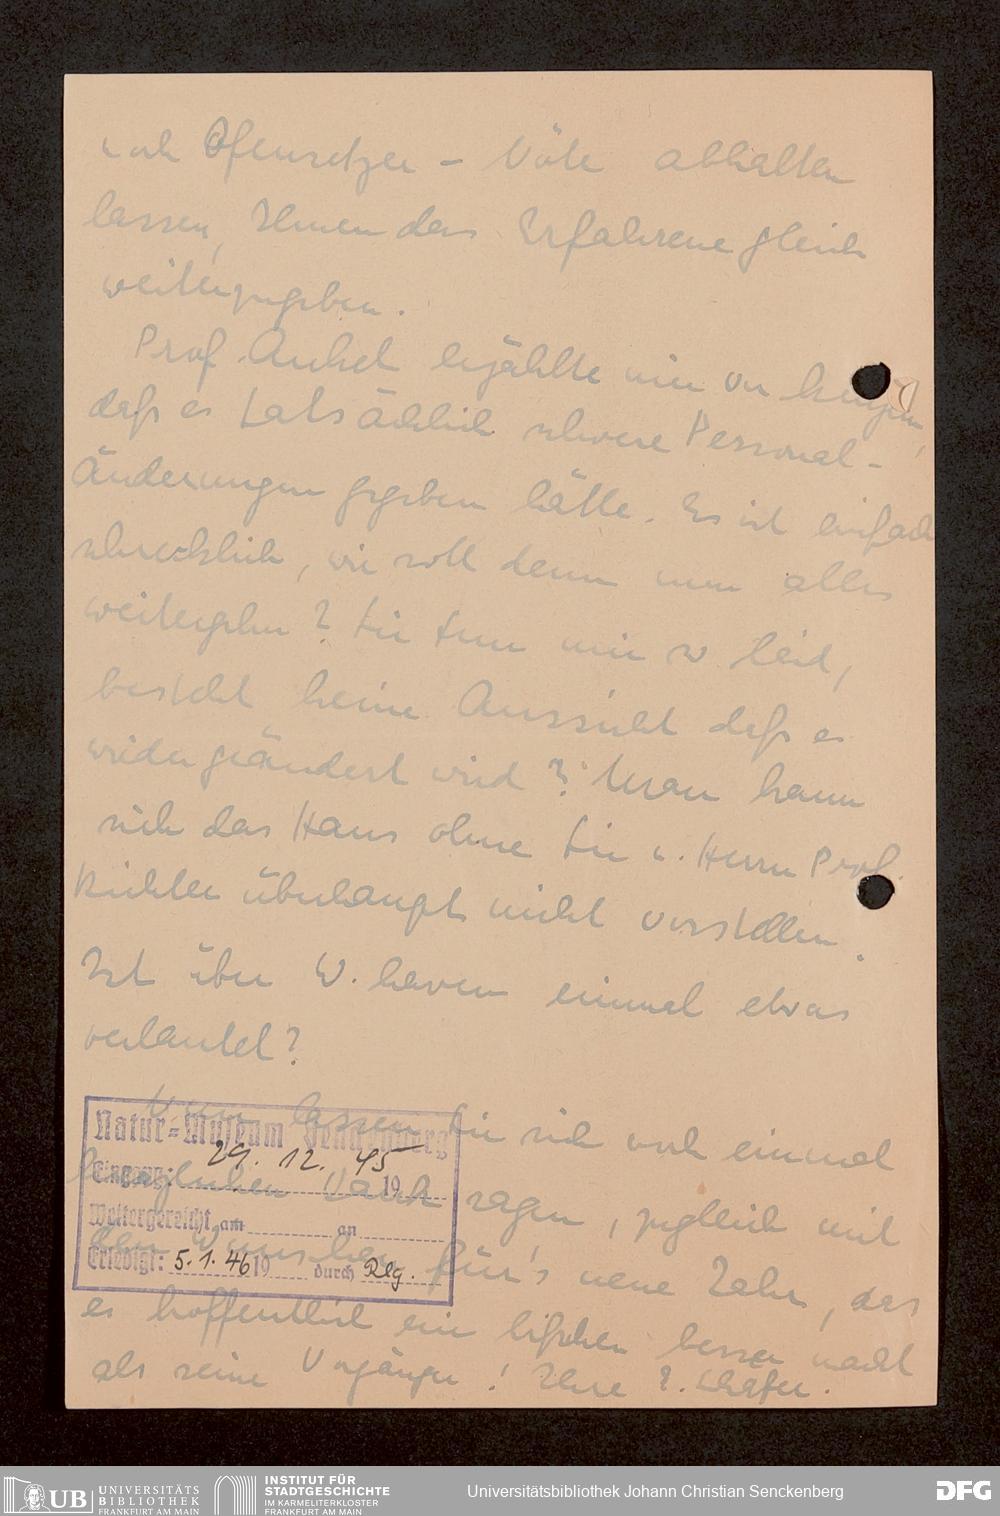 noch Ofensetzer - Nöte abhalten
lassen, Ihnen das Erfahrene gleich
weiterzugeben.
Prof. Ankel erzählte mir vor kurzem,
daß es tatsächlich schwere Personal-
Änderungen gegeben hätte. Es ist einfach
schrecklich, wie soll denn nun alles
weitergehn? Sie tun mir so leid,
besteht keine Aussicht daß es
wieder geändert wird? Man kann
sich das Haus ohne Sie u. Herrn Prof.
Richter überhaupt nicht vorstellen.
Ist über W.haven einmal etwas
verlautet?
Nun lassen Sie sich noch einmal
herzlichen Dank sagen, zugleich mit
den Wünschen für's neue Jahr, das
es hoffentlich ein bißchen besser macht
als seine Vorgänger! Ihre E. Schäfer.
Natur-Museum Senckenberg
Eingang: 29. 12. 45 19
Weitergereicht am an
Erledigt: 5. 1. 46 19 durch Rlg.
UB UNIVERSITÄTS
BIBLIOTHEK
FRANKFURT AM MAIN
INSTITUT FÜR
STADTGESCHICHTE
IM KARMELITERKLOSTER
FRANKFURT AM MAIN
Universitätsbibliothek Johann Christian Senckenberg
DFG